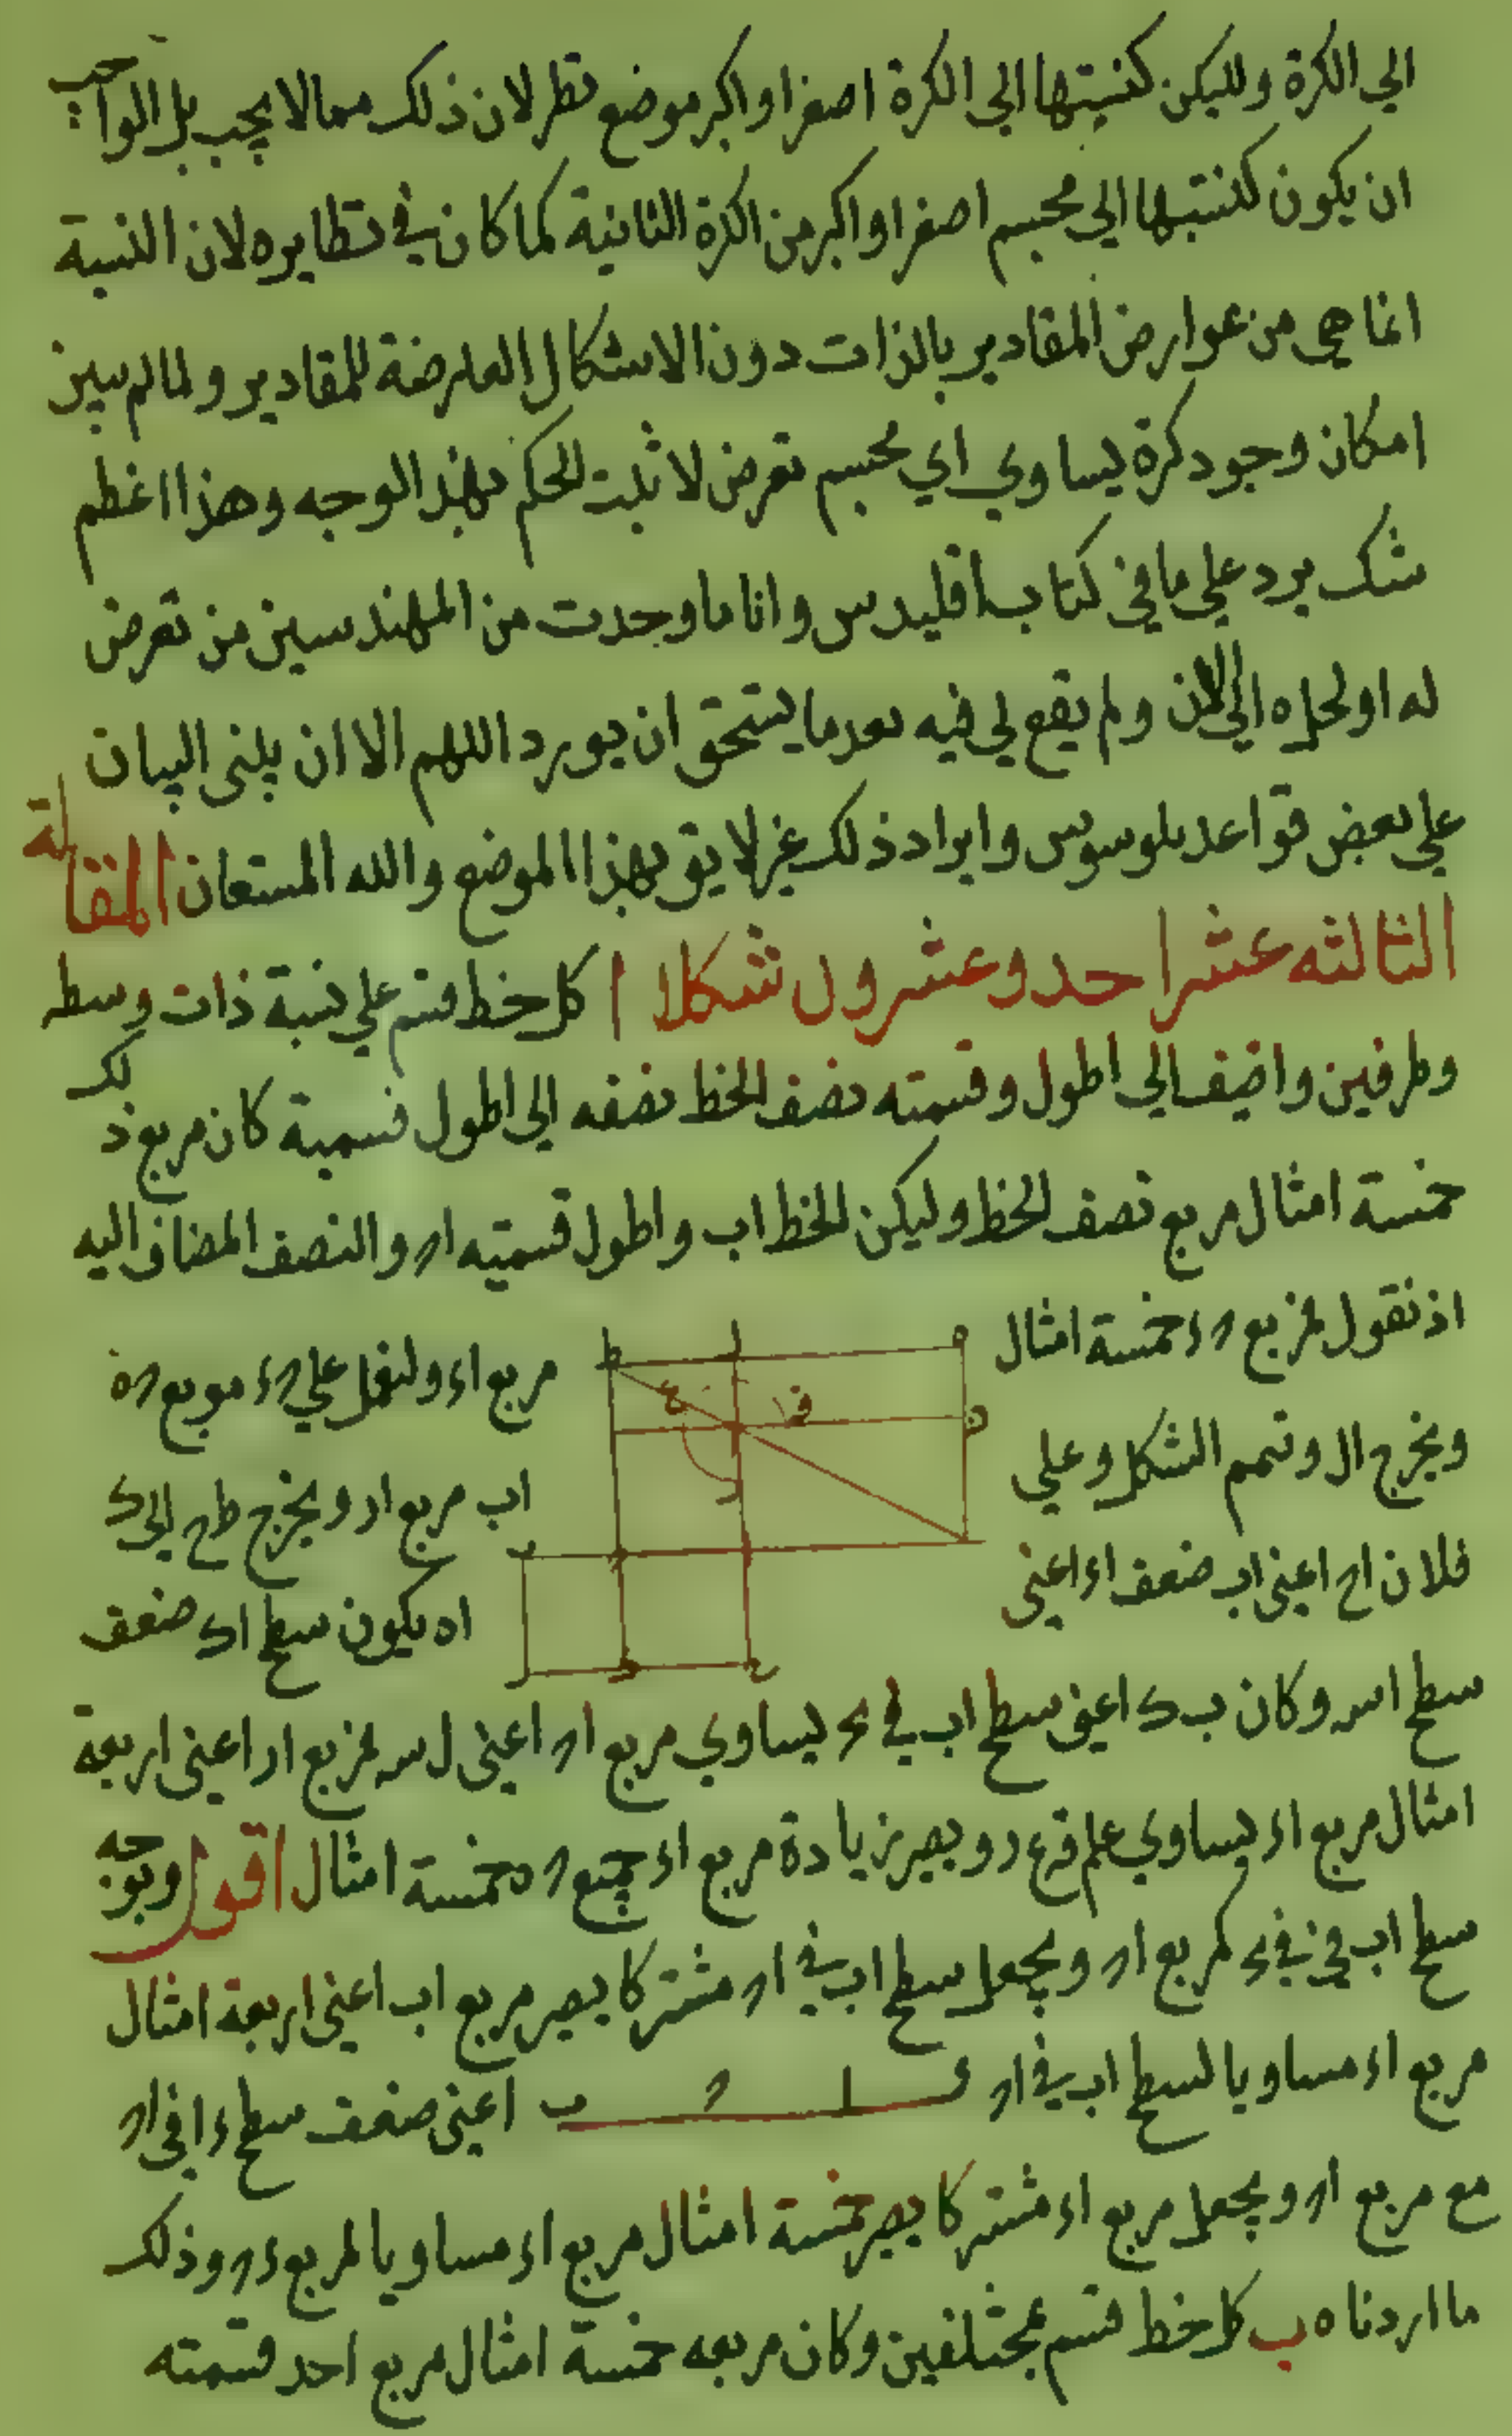 الي الكرة وليكن كنسبتها الي الكرة اصغرا واكبر موضع نظر لان ذلك مما لا يجب بل الواجب
ان يكون كنسبتها الي مجسم اصغرا واكبر من الكرة الثانية كما كان في نظايره لان النسبة
انما هي من عوارض المقادير بالذات دون الاشكال العارضة للمقادير ولما لم يبين
امكان وجود كرة يساوي اي مجسم تعرض لا ثبت الحكم بهذ الوجه وهذا اعظم
شك يرد علي ما في كتاب اقليدس وانا ما وجدت من المهندسين من تعرض
له او لحله الي الان ولم يقع لي فيه بعد ما يستحق ان يورد اللهم الا ان يبنى البيان
علي بعض قواعد بلوسوس وايراد ذلك غير لايق بهذا الموضع والله المستعان المقالة
الثالثه عشر احد وعشرون شكلا ا كل خط قسم علي نسبة ذات وسط
وطرفين واضيف الي اطول وقسمته نصف الخط نصفه الي اطول قسمية كان مربع ذلك
خمسة امثال مربع نصف الخط وليكن الخط اب واطول قسميه ار والنصف المضاف اليه
اذ نقول فمربع ر خمسة امثال مربع اء ولنعمل علي رء مربع ره
ويخرج ال ونتمم الشكل وعلي اب مربع ار ويخرج طح الي ك
فلان اح اعني اب ضعف اء اعني اه يكون سطح اك ضعف
سطح اس وكان ب ك اعني سطح اب في يساوي مربع ار اعني ل س فمربع ار اعني اربعة
امثال مربع اء يساوي علم ق ع ر ويصير بزيادة مربع اء جميع ره خمسة امثال اقول وبوجه
سطح اب في كمربع ار ويجعل سطح اب في ار مشتركا يصير مربع اب اعني اربعة امثال
مربع اء مساويا لسطح اب في ار ء ا ر ب اعني ضعف سطح ءا في ار
مع مربع ار ويجعل مربع اء مشتركا يصير خمسة امثال مربع اء مساويا لمربع ءر وذلك
ما اردناه ب كل خط قسم بمختلفين وكان مربعه خمسة امثال مربع احد قسمته